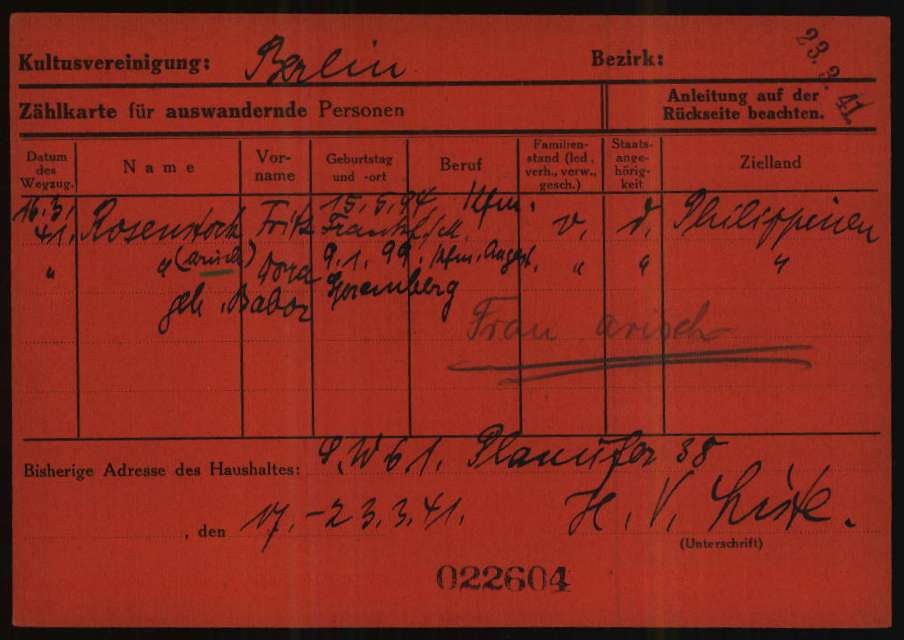 Kultusvereinigung: Berlin Bezirk: 23. 3. 41.
Zählkarte für auswandernde Personen
Anleitung auf der
Rückseite beachten.
Datum des Wegzug. Name Vor-name Geburtstag und -ort Beruf Familien-stand (led., verh., verw., gesch.) Staats-ange-hörig-keit Zielland
16.3. 15.5.94. Kfm.
41. Rosenstock Fritz Frankf./M. v. d. Philippinen
" " (arisch) Dora 9.1.99. Kfm. Angest. " " "
geb. Babor Spremberg
Frau arisch
Bisherige Adresse des Haushaltes: S.W 61. Planufer 38
, den 17.-23.3.41. H. V. Liste.
(Unterschrift)
022604